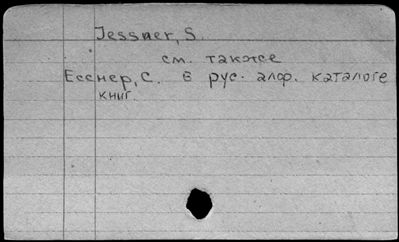 Jessner, S.
см. также
Есснер, С. в рус. алф. каталоге
книг.